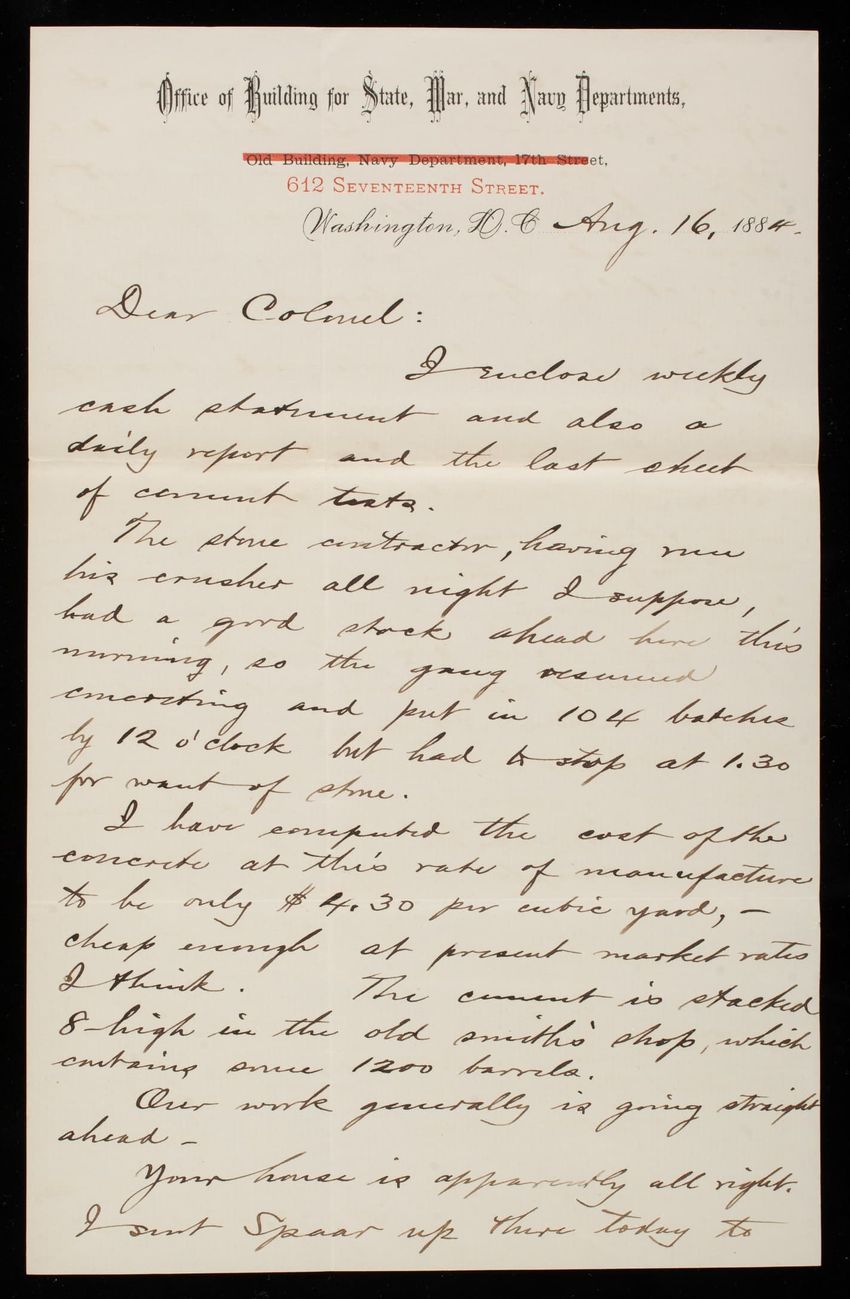 Office of Building for State, War, and Navy Departments,
Old Building, Navy Department, 17th Street,
612 Seventeenth Street.
Washington, D.C. Aug. 16, 1884.
Dear Colonel:
I enclose weekly
cash statement and also a
daily report and the last sheet
of cement tests.
The stone contractor, having run
his crusher all night I suppose,
had a good stock ahead here this
morning, so the gang resumed
concreting and put in 104 batches
by 12 o'clock but had to stop at 1.30
for want of stone.
I have computed the cost of the
concrete at this rate of manufacture
to be only $4.30 per cubic yard, –
cheap enough at present market rates
I think. The cement is stacked
8-high in the old smith's shop, which
contains some 1200 barrels.
Our work generally is going straight
ahead –
Your house is apparently all right.
I sent Spaar up there today to